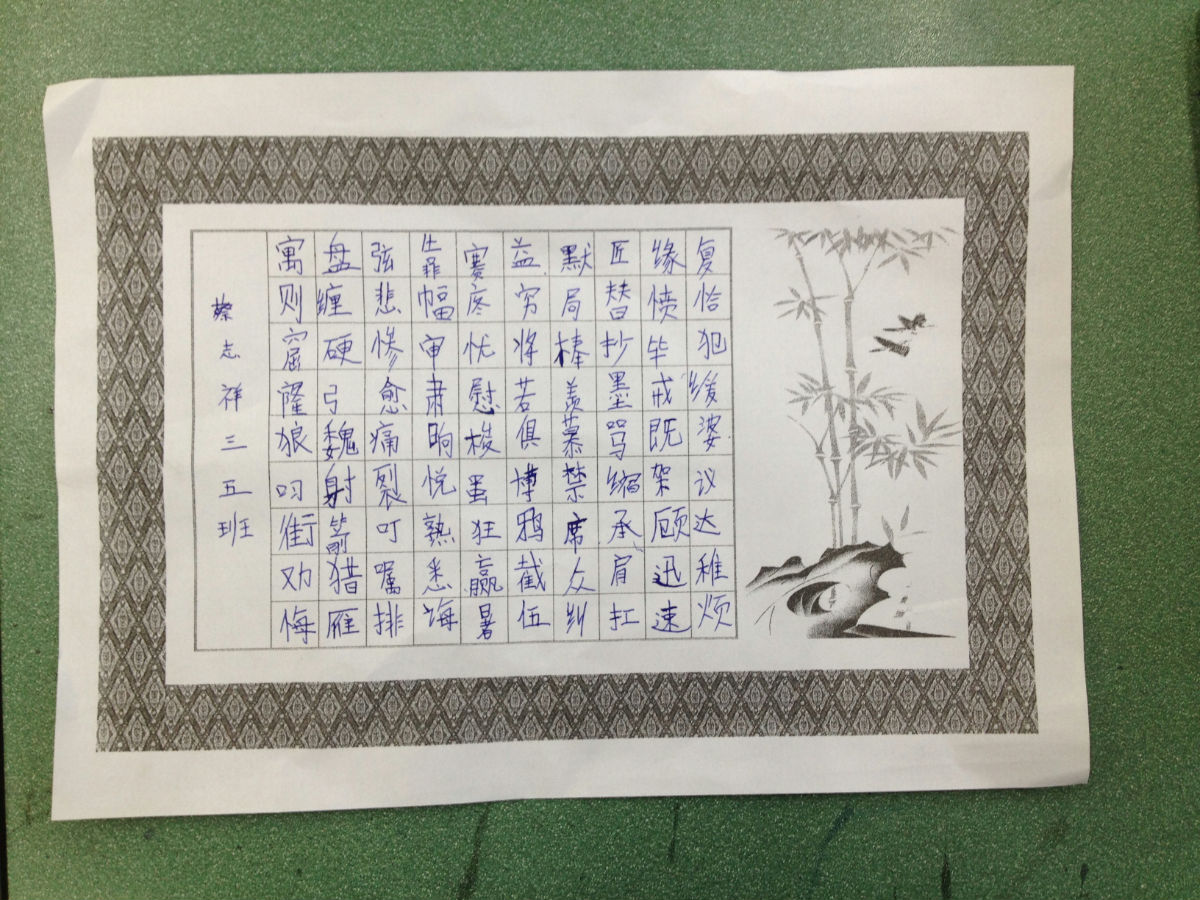 复恰犯缓婆议达稚烦
缘愤毕戒既架顾迅速
匠替抄墨骂缩承肩扛
默局棒羡慕禁席众纠
益穷将若俱博鸦截伍
赛疼忧慰梭蛋狂赢暑
幅审肃晌悦熟悉诲
弦悲惨愈痛裂叮嘱排
盘缠硬弓魏射箭猎雁
寓则窟窿狼叼街劝悔
蔡志祥三五班